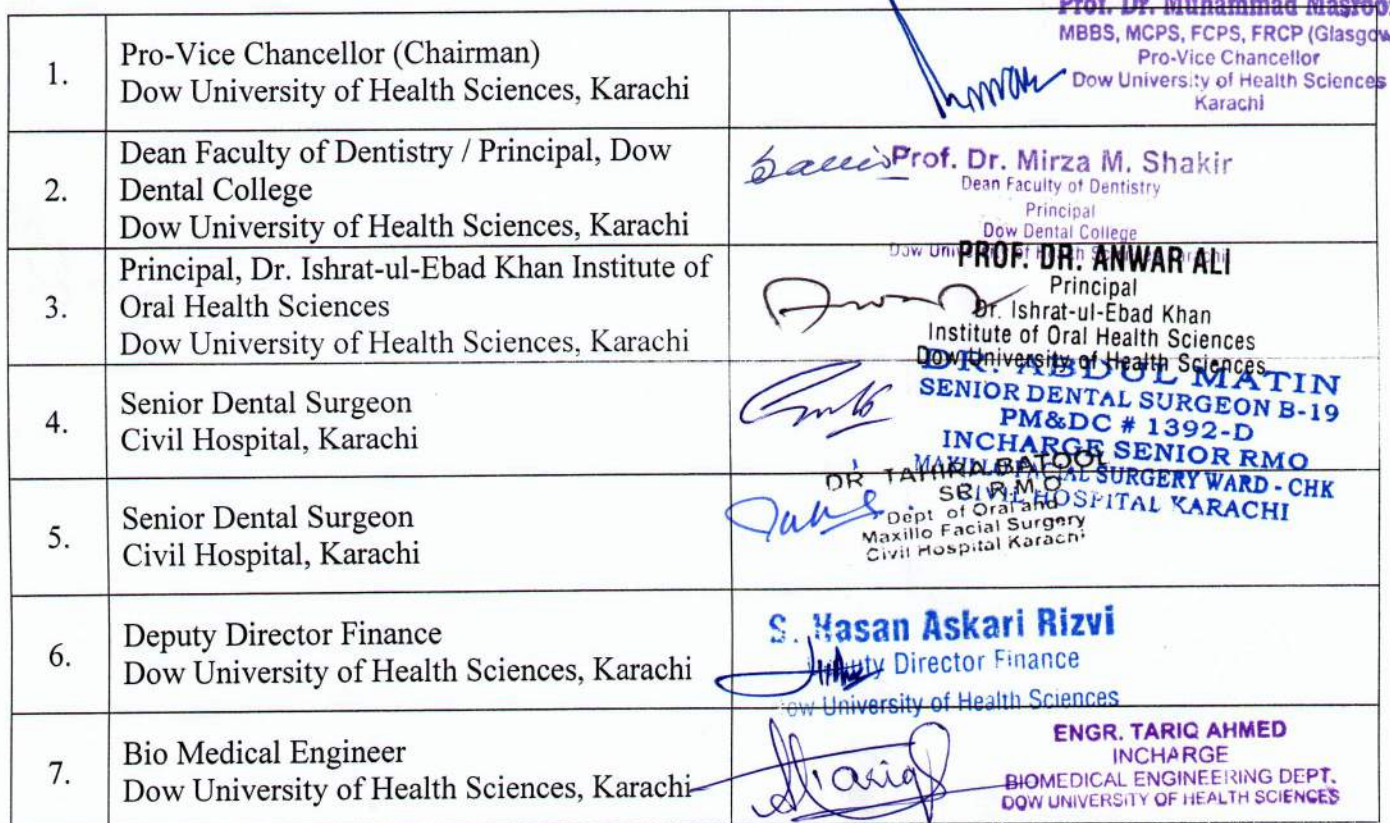 1.
Pro-Vice Chancellor (Chairman)
Dow University of Health Sciences, Karachi
Prof. Dr. Muhammad Masroo
MBBS, MCPS, FCPS, FRCP (Glasgow
Pro-Vice Chancellor
Dow University of Health Sciences
Karachi
2.
Dean Faculty of Dentistry / Principal, Dow
Dental College
Dow University of Health Sciences, Karachi
Prof. Dr. Mirza M. Shakir
Dean Faculty of Dentistry
Principal
Dow Dental College
Dow University of Health Sciences Karachi
3.
Principal, Dr. Ishrat-ul-Ebad Khan Institute of
Oral Health Sciences
Dow University of Health Sciences, Karachi
PROF. DR. ANWAR ALI
Principal
Dr. Ishrat-ul-Ebad Khan
Institute of Oral Health Sciences
Dow University of Health Sciences
4.
Senior Dental Surgeon
Civil Hospital, Karachi
DR. ABDUL MATIN
SENIOR DENTAL SURGEON B-19
PM&DC # 1392-D
INCHARGE SENIOR RMO
MAXILLOFACIAL SURGERY WARD - CHK
CIVIL HOSPITAL KARACHI
5.
Senior Dental Surgeon
Civil Hospital, Karachi
DR TAHIRA BATOOL
SR. R.M.O
Dept of Oral and
Maxillo Facial Surgery
Civil Hospital Karachi
6.
Deputy Director Finance
Dow University of Health Sciences, Karachi
S. Hasan Askari Rizvi
Deputy Director Finance
Dow University of Health Sciences
7.
Bio Medical Engineer
Dow University of Health Sciences, Karachi
Tariq
ENGR. TARIQ AHMED
INCHARGE
BIOMEDICAL ENGINEERING DEPT.
DOW UNIVERSITY OF HEALTH SCIENCES